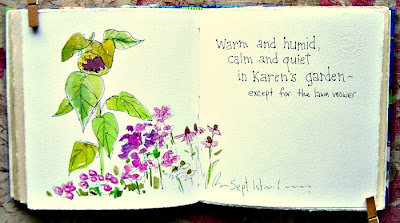 Warm and humid,
calm and quiet
in Karen's garden -
except for the lawn mower
Sept 1st